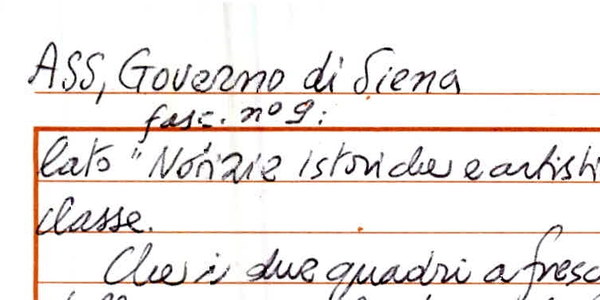 ASS, Governo di Siena
fasc. nº 9:
lato "Notizie istoriche e artisti
classe.
Che i due quadri a fresc